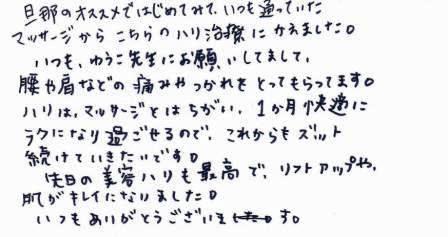 旦那のオススメではじめてみて、いつも通っていた
マッサージからこちらのハリ治療にかえました。
いつも、ゆうこ先生にお願いしてまして、
腰や肩などの痛みやつかれをとってもらってます。
ハリは、マッサージとはちがい、1か月快適に
ラクになり過ごせるので、これからもズット
続けていきたいです。
先日の美容ハリも最高で、リフトアップや、
肌がキレイになりました。
いつもありがとうございます。